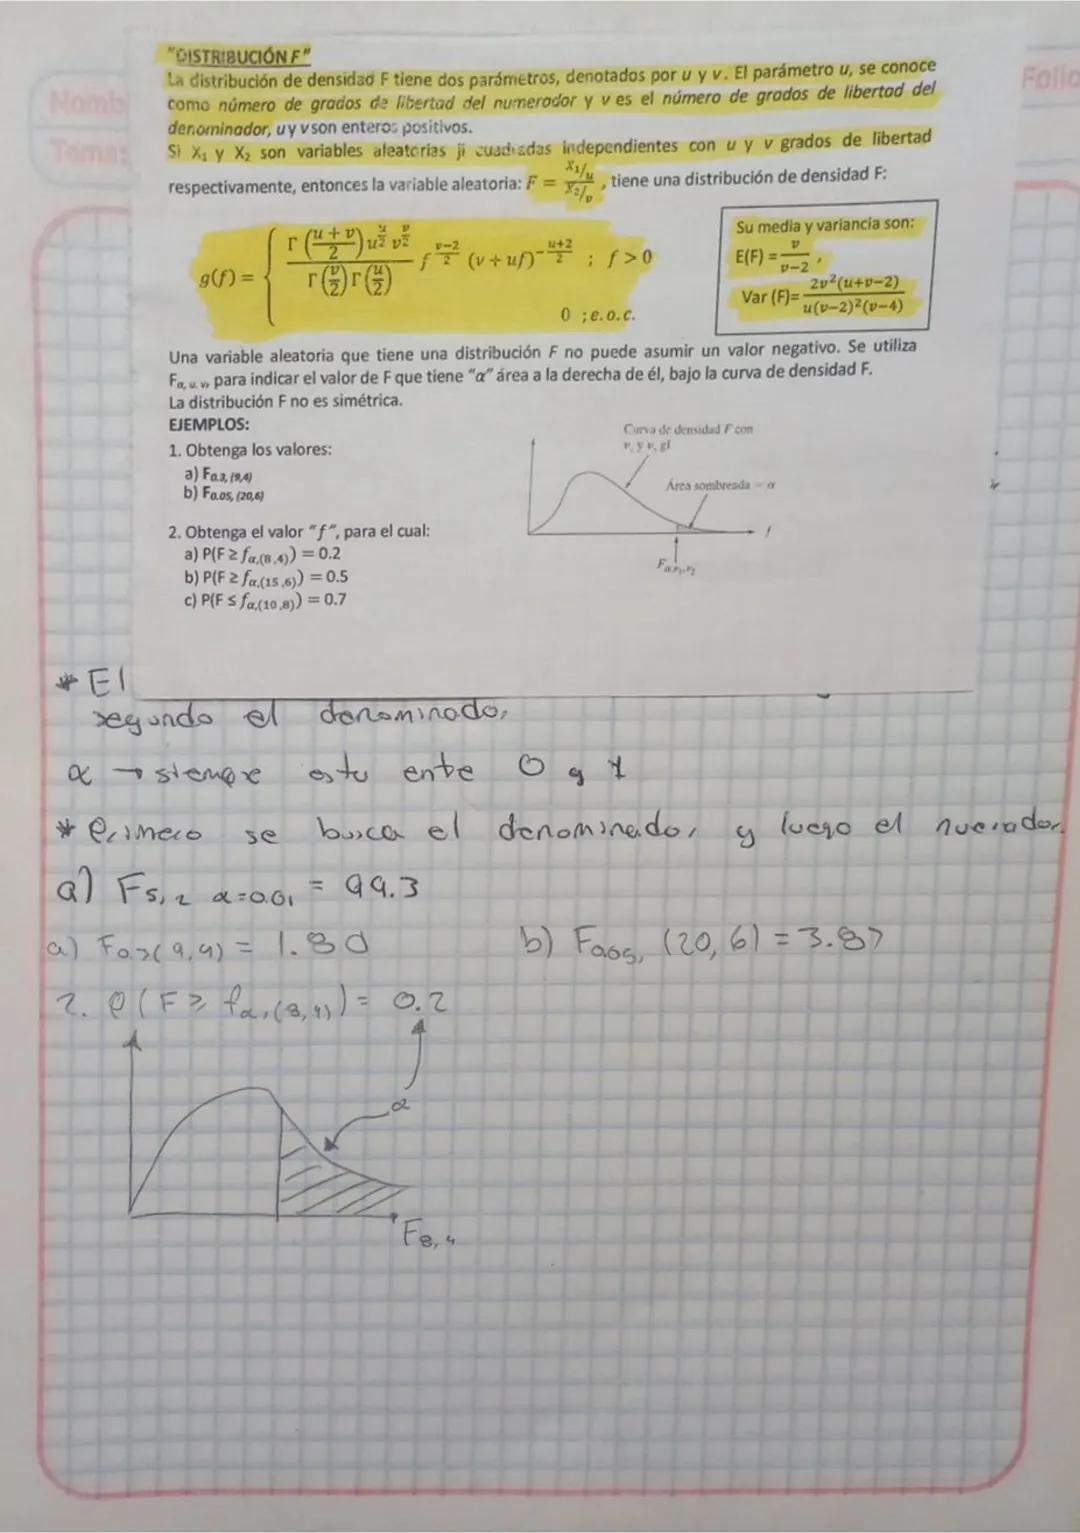 Nomb
Tema:
Folio
"DISTRIBUCIÓN F"
La distribución de densidad F tiene dos parámetros, denotados por u y v. El parámetro u, se conoce
como número de grados de libertad del numerador y v es el número de grados de libertad del
denominador, u y v son enteros positivos.
Si X₁ y X₂ son variables aleatorias ji cuadradas independientes con u y v grados de libertad
respectivamente, entonces la variable aleatoria: F = (X₁/u)/(X₂/v), tiene una distribución de densidad F:
g(f) = { Γ((u+v)/2) u^(u/2) v^(v/2) / Γ(v/2) Γ(u/2) f^((v−2)/2) (v + uf)^(−(u+2)/2) ; f > 0
0 ; e.o.c.
Su media y variancia son:
E(F) = v/(v−2) ,
Var (F)= 2v²(u+v−2)/u(v−2)²(v−4)
Una variable aleatoria que tiene una distribución F no puede asumir un valor negativo. Se utiliza
Fα, u, v, para indicar el valor de F que tiene "α" área a la derecha de él, bajo la curva de densidad F.
La distribución F no es simétrica.
EJEMPLOS:
1. Obtenga los valores:
a) F0.3, (9,4)
b) F0.05, (20,6)
2. Obtenga el valor "f", para el cual:
a) P(F ≥ fα,(8,4)) = 0.2
b) P(F ≥ fα,(15,6)) = 0.5
c) P(F ≤ fα,(10,8)) = 0.7
Curva de densidad F con
v, y v, gl
Área sombreada = α
f
Fα,v₁,v₂
* El
segundo el denominador
α → siempre esta entre 0 y 1
* Primero se busca el denominador y luego el nuerador
a) F5, 2 α=0.01 = 99.3
a) F0.3(9,4) = 1.80
b) F0.05, (20,6) = 3.87
2. P(F ≥ fα,(8,4)) = 0.2
α
F8,4